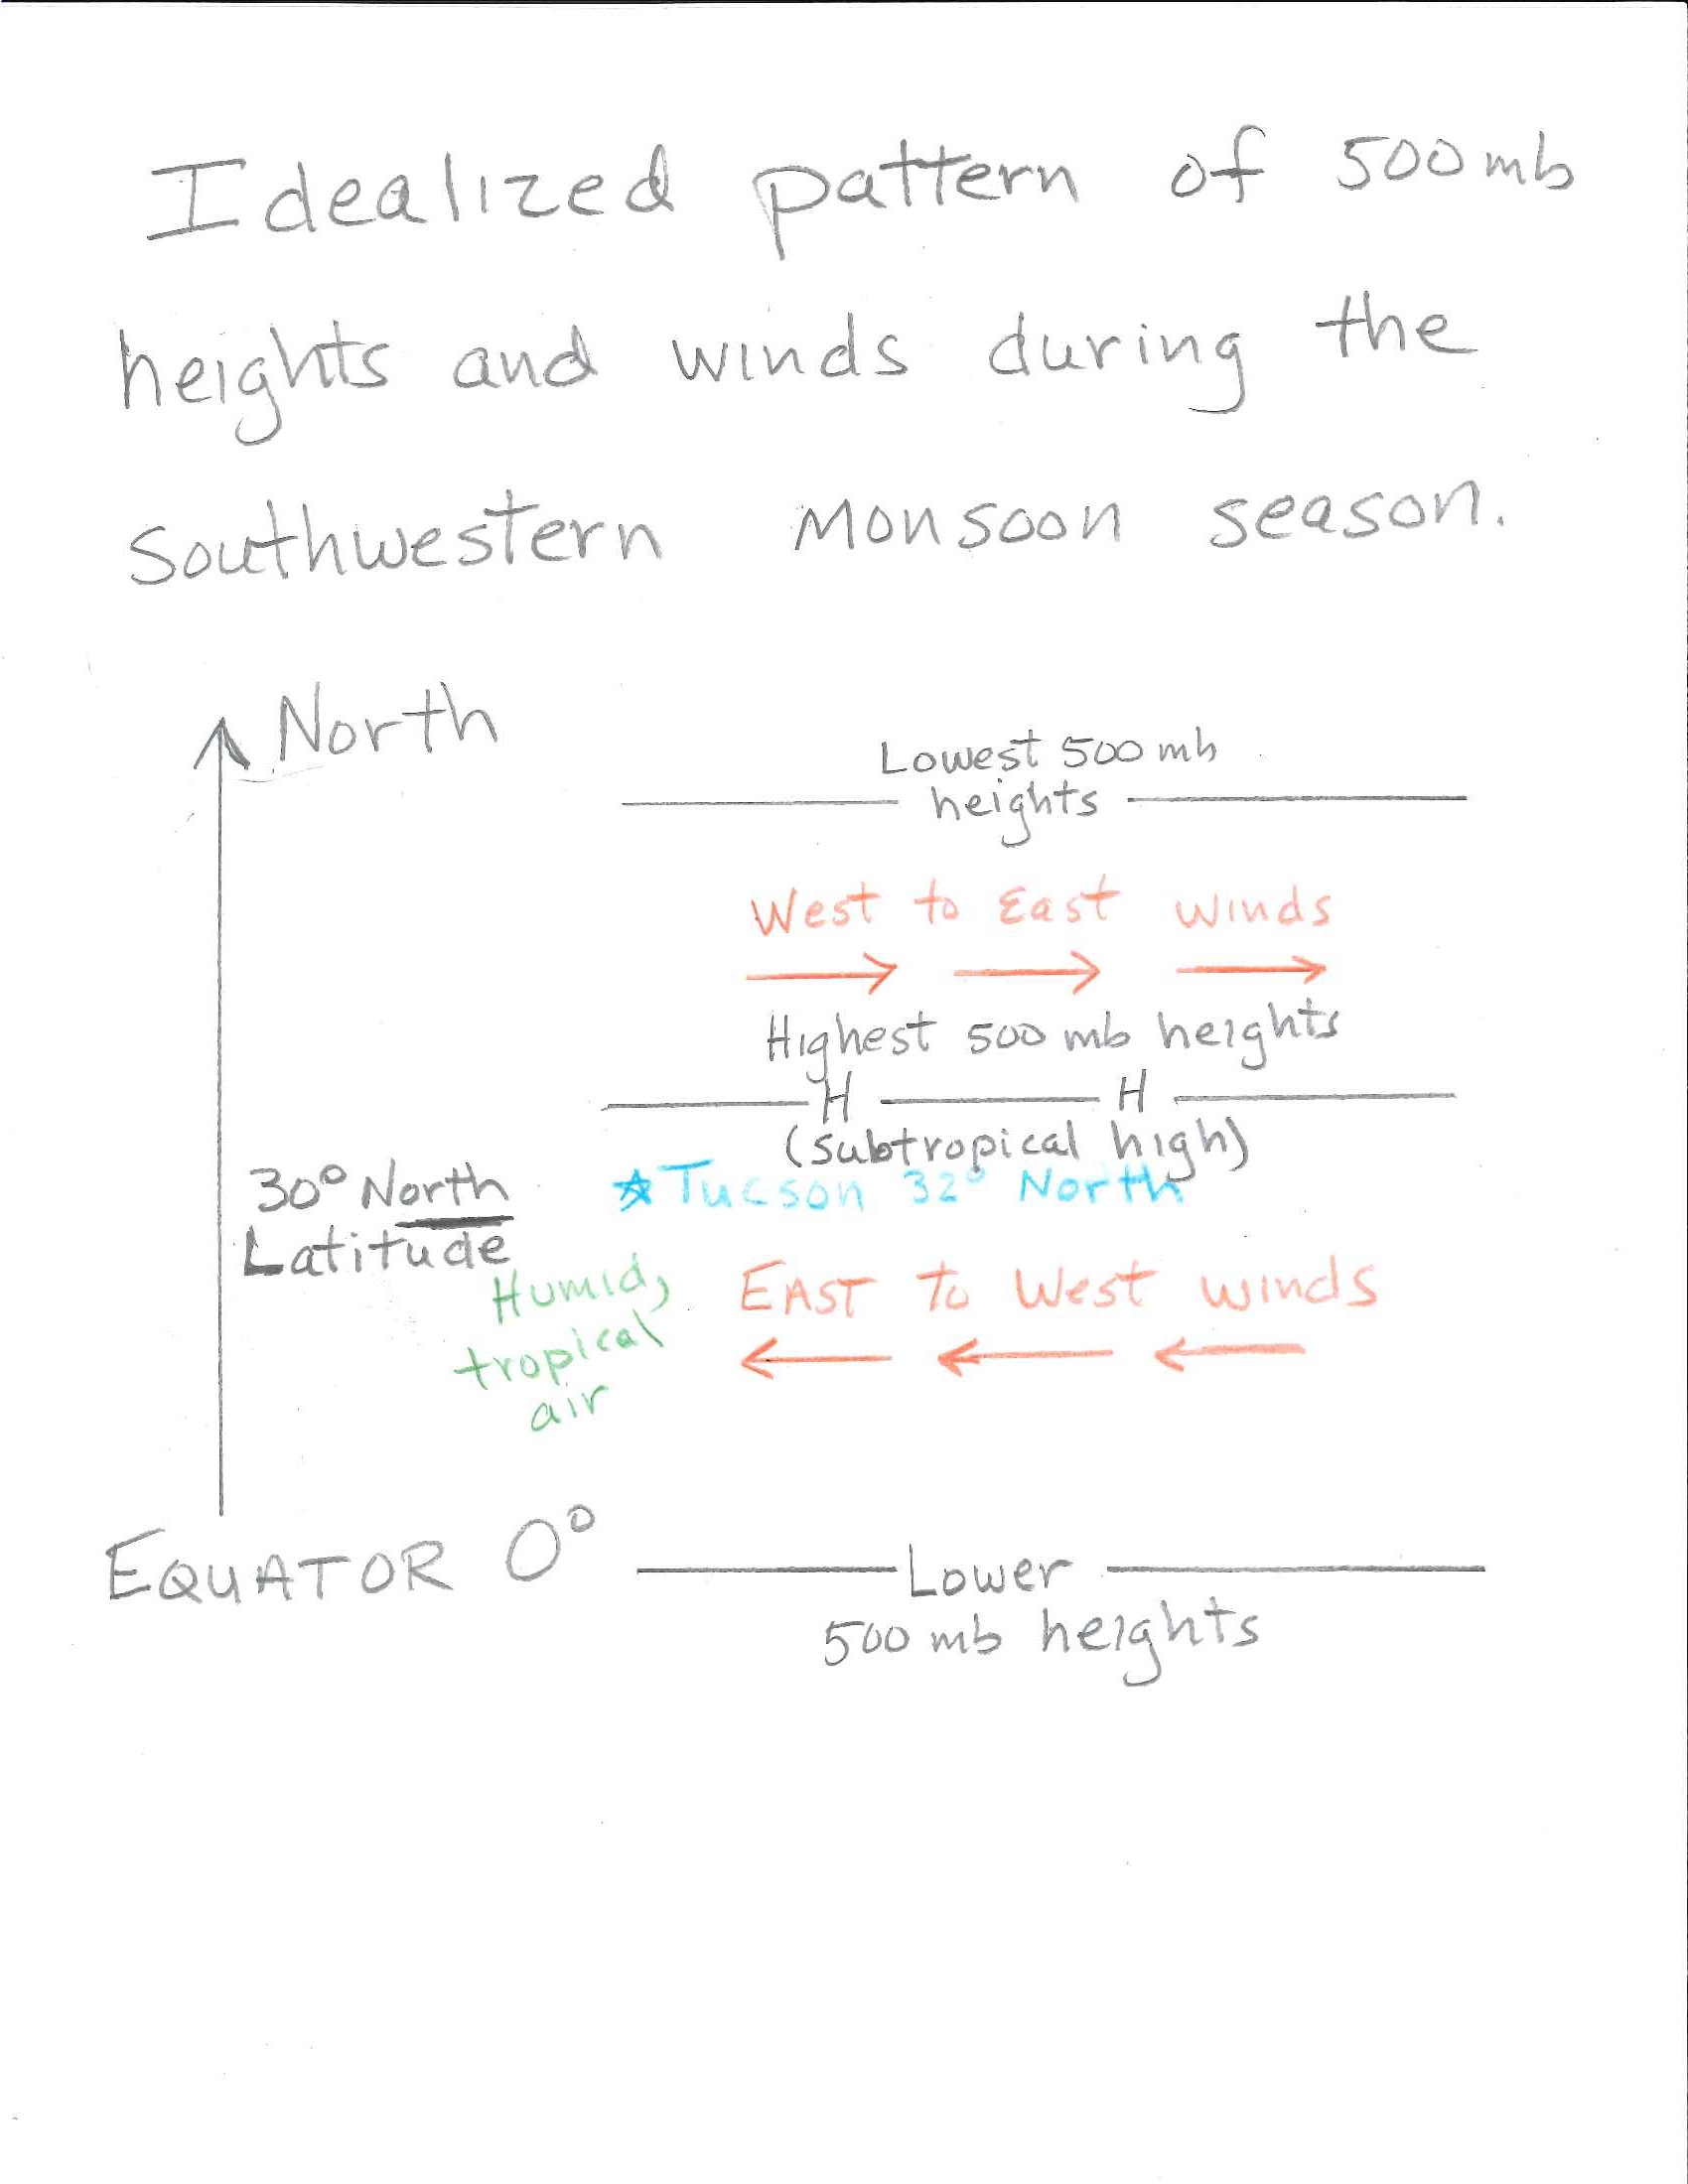 Idealized pattern of 500mb
heights and winds during the
southwestern Monsoon season.
North
Lowest 500 mb
heights
West to East winds
Highest 500 mb heights
H H
(subtropical high)
30° North
Latitude
Tucson 32° North
Humid,
tropical
air
EAST To West winds
EQUATOR 0°
Lower
500 mb heights